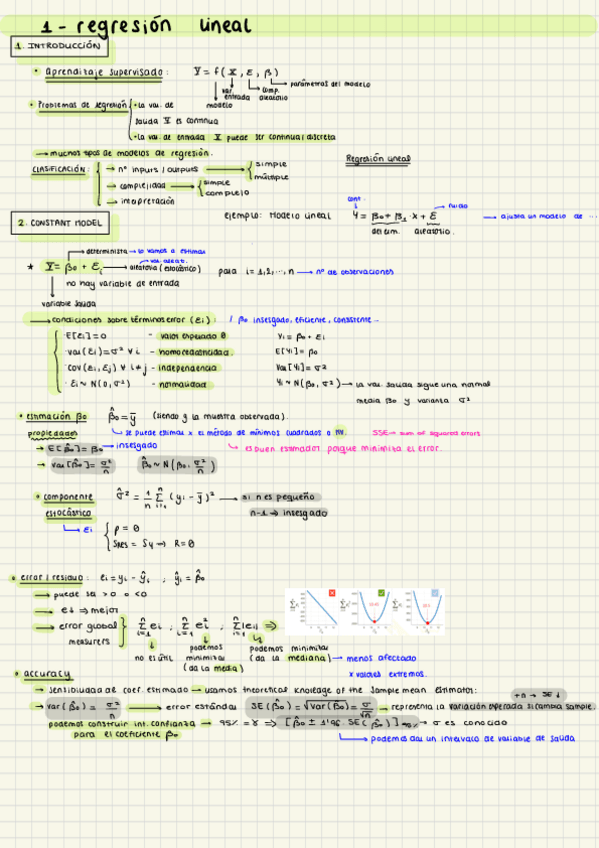 1 - regresión lineal
1. INTRODUCCIÓN
• Aprendizaje supervisado: Y = f(X, ε, β) → parámetros del modelo
modelo var. entrada comp. aleatorio
• Problemas de regresión • La var. de salida Y es continua
• La var. de entrada X puede ser continua/discreta
→ muchos tipos de modelos de regresión.
CLASIFICACIÓN: → nº inputs/outputs → simple múltiple
→ complejidad → simple complejo
→ interpretación
Regresión lineal
ejemplo: modelo lineal Y = β0 + β1·x + ε → ajusta un modelo de ...
cont. ruido
determ. aleatorio.
2. CONSTANT MODEL
→ determinista → lo vamos a estimar
* Y = β0 + εi → aleatoria (estocástico) para i = 1,2,...,n → nº de observaciones
var. aleat.
no hay variable de entrada
variable salida
→ condiciones sobre términos error (εi): / β0 insesgado, eficiente, consistente...
· E[εi] = 0 - valor esperado 0 Yi = β0 + εi
· var(εi) = σ² ∀ i - homocedasticidad. E[Yi] = β0
· cov(εi, εj) ∀ i ≠ j - independencia Var[Yi] = σ²
· εi ~ N(0, σ²) - normalidad Yi ~ N(β0, σ²) → la var. salida sigue una normal
media β0 y varianza σ²
• estimación β0 β̂0 = ȳ (siendo y la muestra observada).
propiedades → se puede estimar x el método de mínimos cuadrados o MV. SSE → sum of squared errors
→ E[β̂0] = β0 → insesgado → es buen estimador porque minimiza el error.
→ var[β̂0] = σ²/n β̂0 ~ N(β0, σ²/n)
• componente estocástico σ̂² = 1/n Σ i=1 n (yi - ȳ)² → si n es pequeño
n-1 → insesgado
→ εi ρ = 0
Sres = Sy → R = 0
• error/residuo: ei = yi - ŷi ; ŷi = β̂0
→ puede ser > 0 o < 0
→ e↓ ⇒ mejor
→ error global measurers Σ i=1 n ei ; Σ i=1 n ei² ; Σ i=1 n |ei| ⇒
no es útil podemos minimizar (da la media) podemos minimizar (da la mediana) → menos afectado
x valores extremos.
• accuracy
→ sensibilidad de coef. estimado → usamos theoretical knowledge of the sample mean estimator: +n → SE↓
→ var(β̂0) = σ²/n → error estándar SE(β̂0) = √var(β̂0) = σ/√n → representa la variación esperada si cambia sample.
podemos construir int. confianza → 95% = γ ⇒ [β̂0 ± 1'96 · SE(β̂0)] 95% → σ es conocido
para el coeficiente β0
→ podemos dar un intervalo de variable de salida